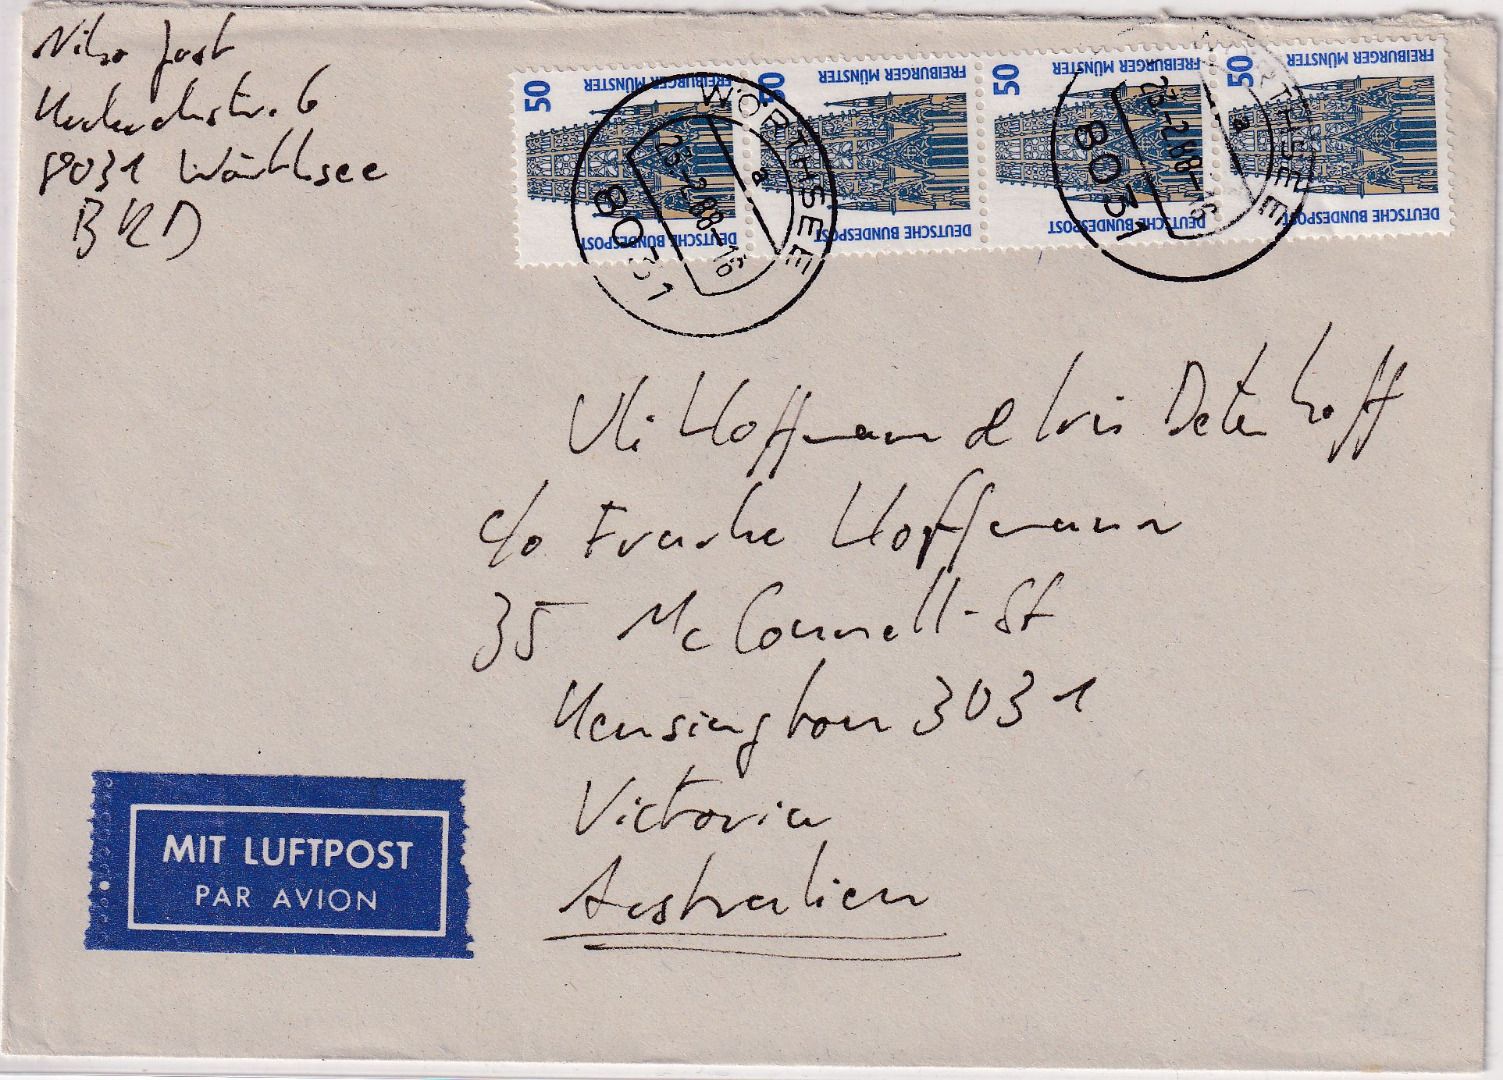 Jost
6
8031 Wörthsee
BRD
50 FREIBURGER MÜNSTER DEUTSCHE BUNDESPOST
50 FREIBURGER MÜNSTER DEUTSCHE BUNDESPOST
50 FREIBURGER MÜNSTER DEUTSCHE BUNDESPOST
50 FREIBURGER MÜNSTER DEUTSCHE BUNDESPOST
WÖRTHSEE a 23.-2.88-16 8031
WÖRTHSEE a 23.-2.88-16 8031
Uli Hoffmann & Iris Detenhoff
c/o Frauke Hoffmann
35 McConnell-St
Kensington 3031
Victoria
Australien
MIT LUFTPOST
PAR AVION